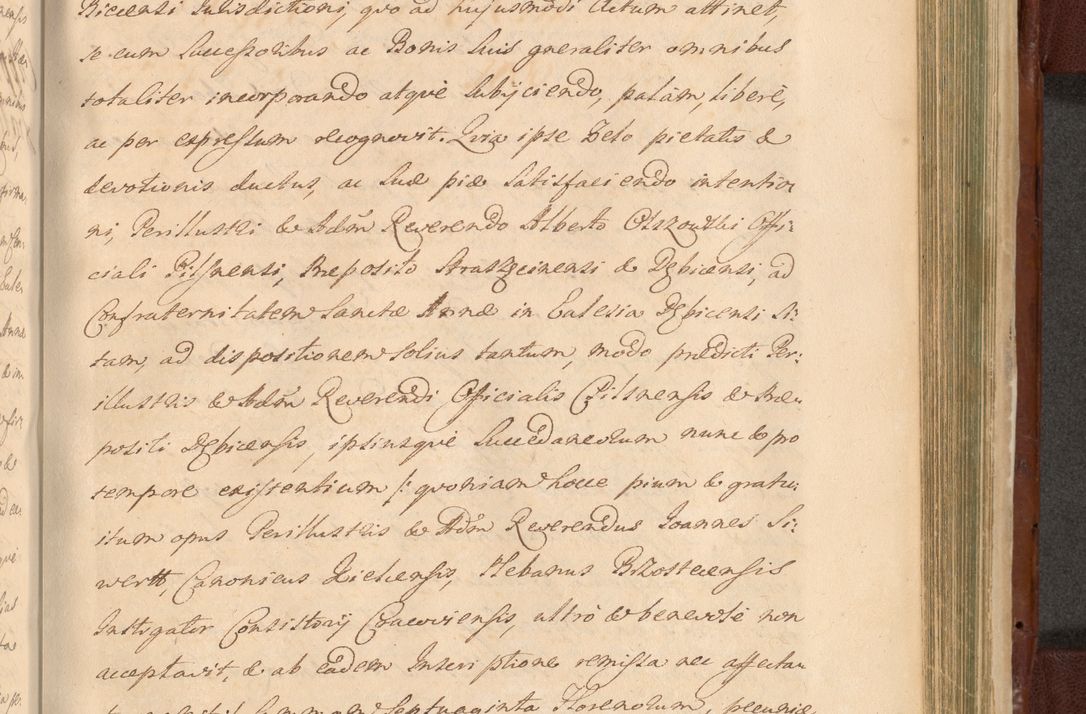 Bieczensi Jurisdictioni, quo ad hujusmodi Actum attinet,
se cum Successoribus ac Bonis suis gñeraliter omnibus
totaliter incorporando atque Subijciendo, palàm, liberè,
ac per expressum recognovit. Quia ipse Zelo pietatis &
devotionis ductus, ac suæ piæ satisfaciendo intentio
ni, Perillustri & Adm̃ Reverendo Alberto Olszowski Offi:
ciali Pilsnensi, Præposito Straszęcinensi & Dębicensi, ad
Confraternitatem Sanctæ Annæ in Ecclesia Dębicensi si:
tam, ad dispositionem solius tantum, modo prædicti Per:
illustris & Adm̃ Reverendi Officialis Pilsnensis & Præ
positi Dębicensis, ipsiusque Succedaneorum nunc & pro
tempore existentium /: quoniam hocce pium & gratu:
itum opus Perillustris & Adm̃ Reverendus Joannes Si:
wertt, Canonicus Kielcensis, Plebanus Brzostecensis
Instigator Consistorij Cracoviensis, ultrò & benevolè non
acceptavit, & ab eâdem Inscriptione remissa nec affectau
Summam Septuaginta Florenorum, pecuniæ